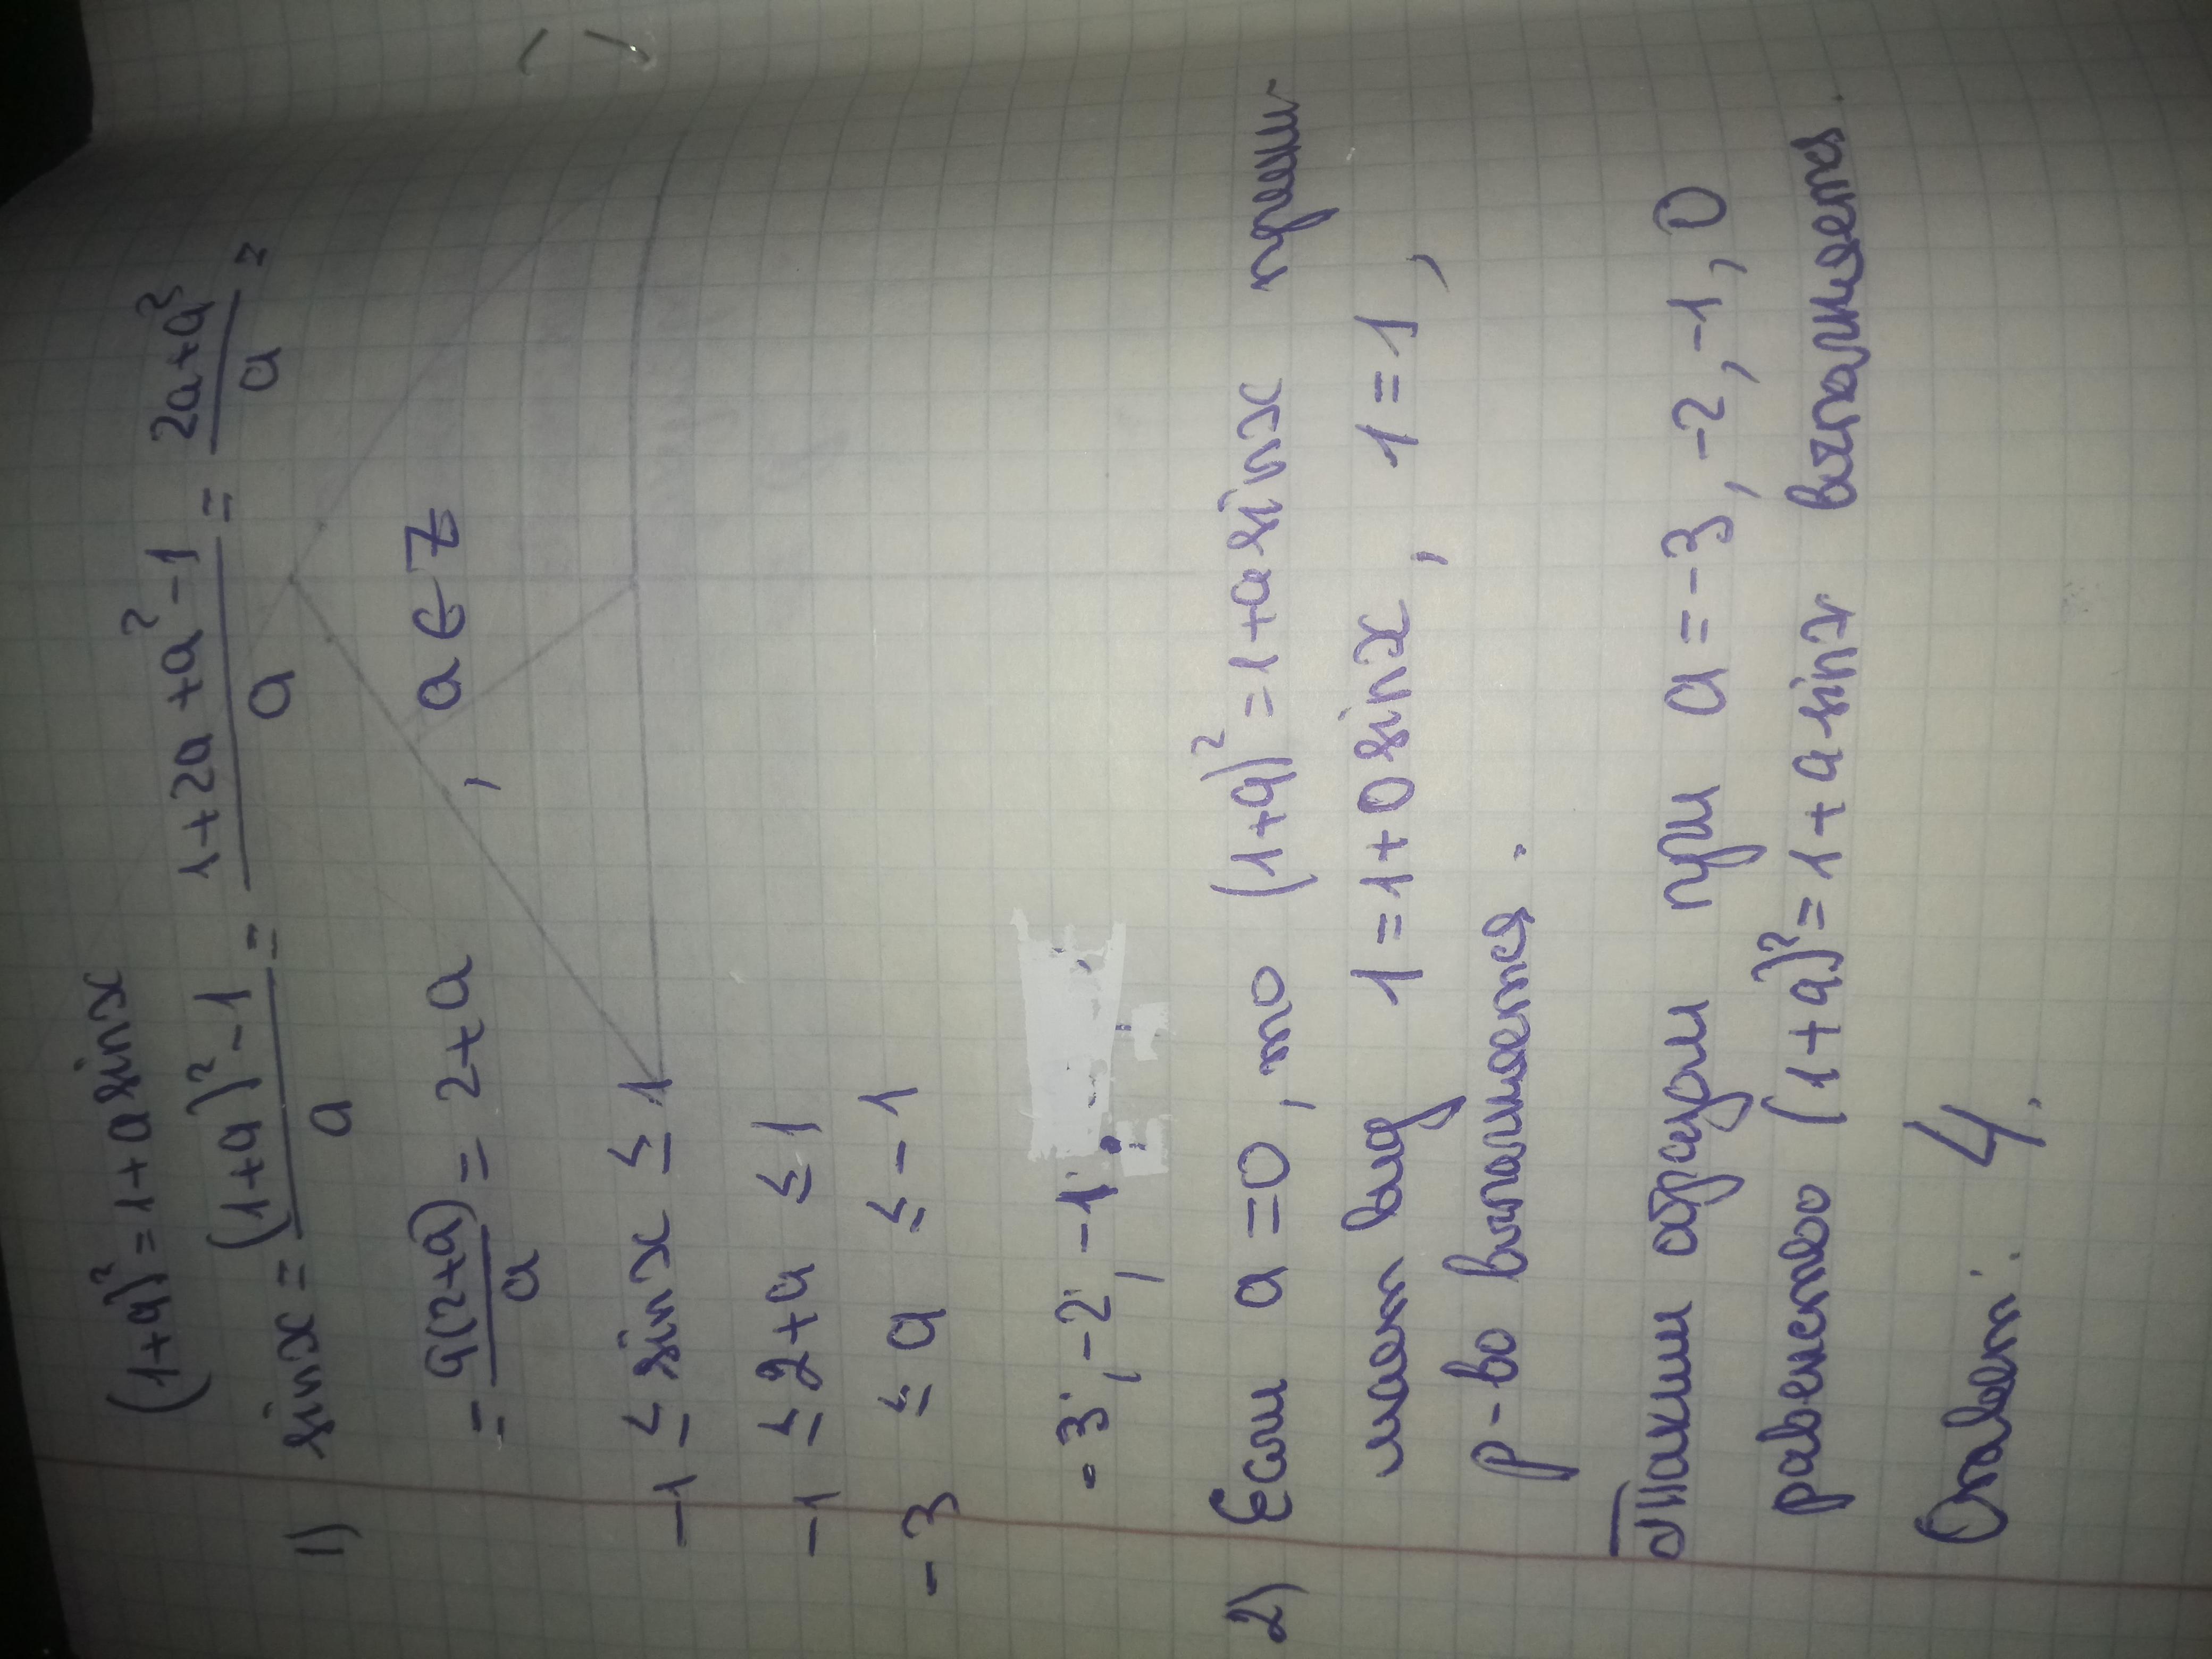 (1+a)² = 1 + a sinx
1) sinx = \frac{(1+a)² - 1}{a} = \frac{1 + 2a + a² - 1}{a} = \frac{2a + a²}{a} =
= \frac{a(2+a)}{a} = 2 + a , a ∈ Z
-1 ≤ sinx ≤ 1
-1 ≤ 2+a ≤ 1
-3 ≤ a ≤ -1
-3; -2; -1;
2) Если a = 0, то (1+a)² = 1 + a sinx прини-
мает вид 1 = 1 + 0 sinx, 1 = 1,
р-во выполняется.
Таким образом при a = -3, -2, -1, 0
равенство (1+a)² = 1 + a sinx выполняется.
Ответ: 4.